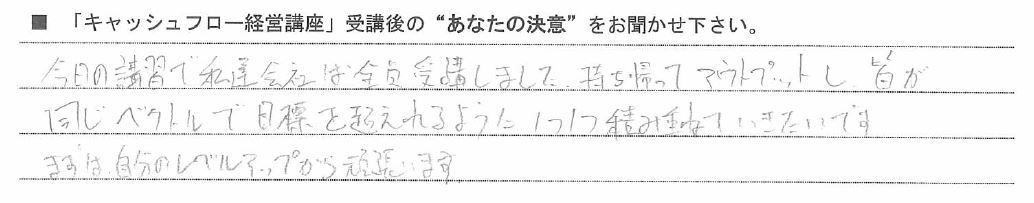 ■ 「キャッシュフロー経営講座」受講後の“あなたの決意”をお聞かせ下さい。
今日の講習で私達会社は全員受講しました。持ち帰ってアウトプットし、皆が
同じベクトルで目標を超えれるように1つ1つ積み重ねていきたいです
まずは、自分のレベルアップから頑張います